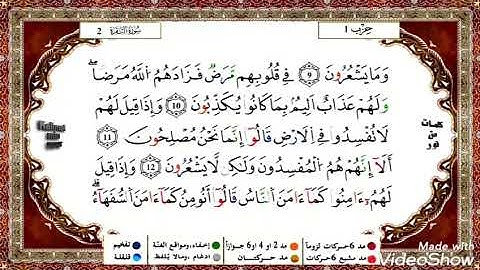 حزب 1
سورة البقرة 2
وَمَا يَشْعُرُونَ 9 فِي قُلُوبِهِم مَّرَضٌ فَزَادَهُمُ اللَّهُ مَرَضاً
وَلَهُمْ عَذَابٌ اَلِيمٌ بِمَا كَانُوا يُكَذِّبُونَ 10 وَإِذَا قِيلَ لَهُمْ
لَا تُفْسِدُوا فِي الَارْضِ قَالُوا إِنَّمَا نَحْنُ مُصْلِحُونَ 11
أَلَا إِنَّهُمْ هُمُ الْمُفْسِدُونَ وَلَكِن لَّا يَشْعُرُونَ 12 وَإِذَا قِيلَ
لَهُمُ ءَامِنُوا كَمَا ءَامَنَ النَّاسُ قَالُوا أَنُومِنُ كَمَا ءَامَنَ السُّفَهَاءُ
كلمات
من
نور
مد 6 حركات لزوماً مد 2 أو 4 أو 6 جوازاً إخفاء، ومواقع الغنة تفخيم
مد مشبع 6 حركات مد حركتان ادغام، ومالا يلفظ قلقلة
Made with
VideoShow